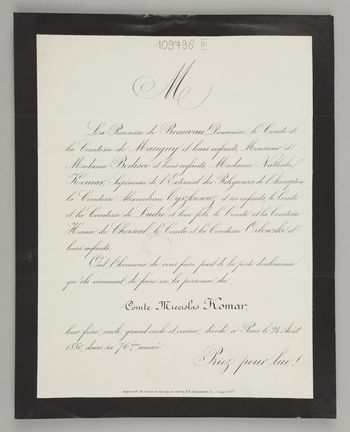 109796 III
M
La Princesse de Beauvau Douairière, le Comte et
la Comtesse de Maugny et leurs enfants, Monsieur et
Madame Bodisco et leurs enfants, Madame Nathalie
Komar, Supérieure de l'Externat des Religieuses de l'Assomption,
la Comtesse Alexandrine Tyszkiewicz et ses enfants, le Comte
et la Comtesse de Ludre et leur fils, le Comte et la Comtesse
Horace de Choiseul, le Comte et la Comtesse Orlowski et
leurs enfants,
Ont l'honneur de vous faire part de la perte douloureuse
qu'ils viennent de faire en la personne du
Comte Miecislas Komar,
leur frère, oncle, grand oncle et cousin, décédé à Paris le 24 Août
dans sa 76ème année.
Priez pour lui!